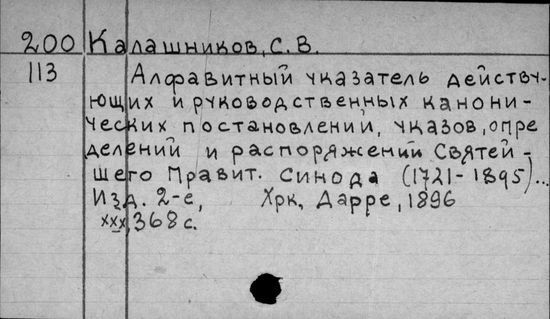 200 Калашников, С. В.
113 Алфавитный указатель действу-
ющих и руководственных канони-
ческих постановлений, указов, опре
делений и распоряжений Святей-
шего Правит. Синода (1721-1895)...
Изд. 2-е, Хрк, Дарре, 1896
xxx, 368 с.